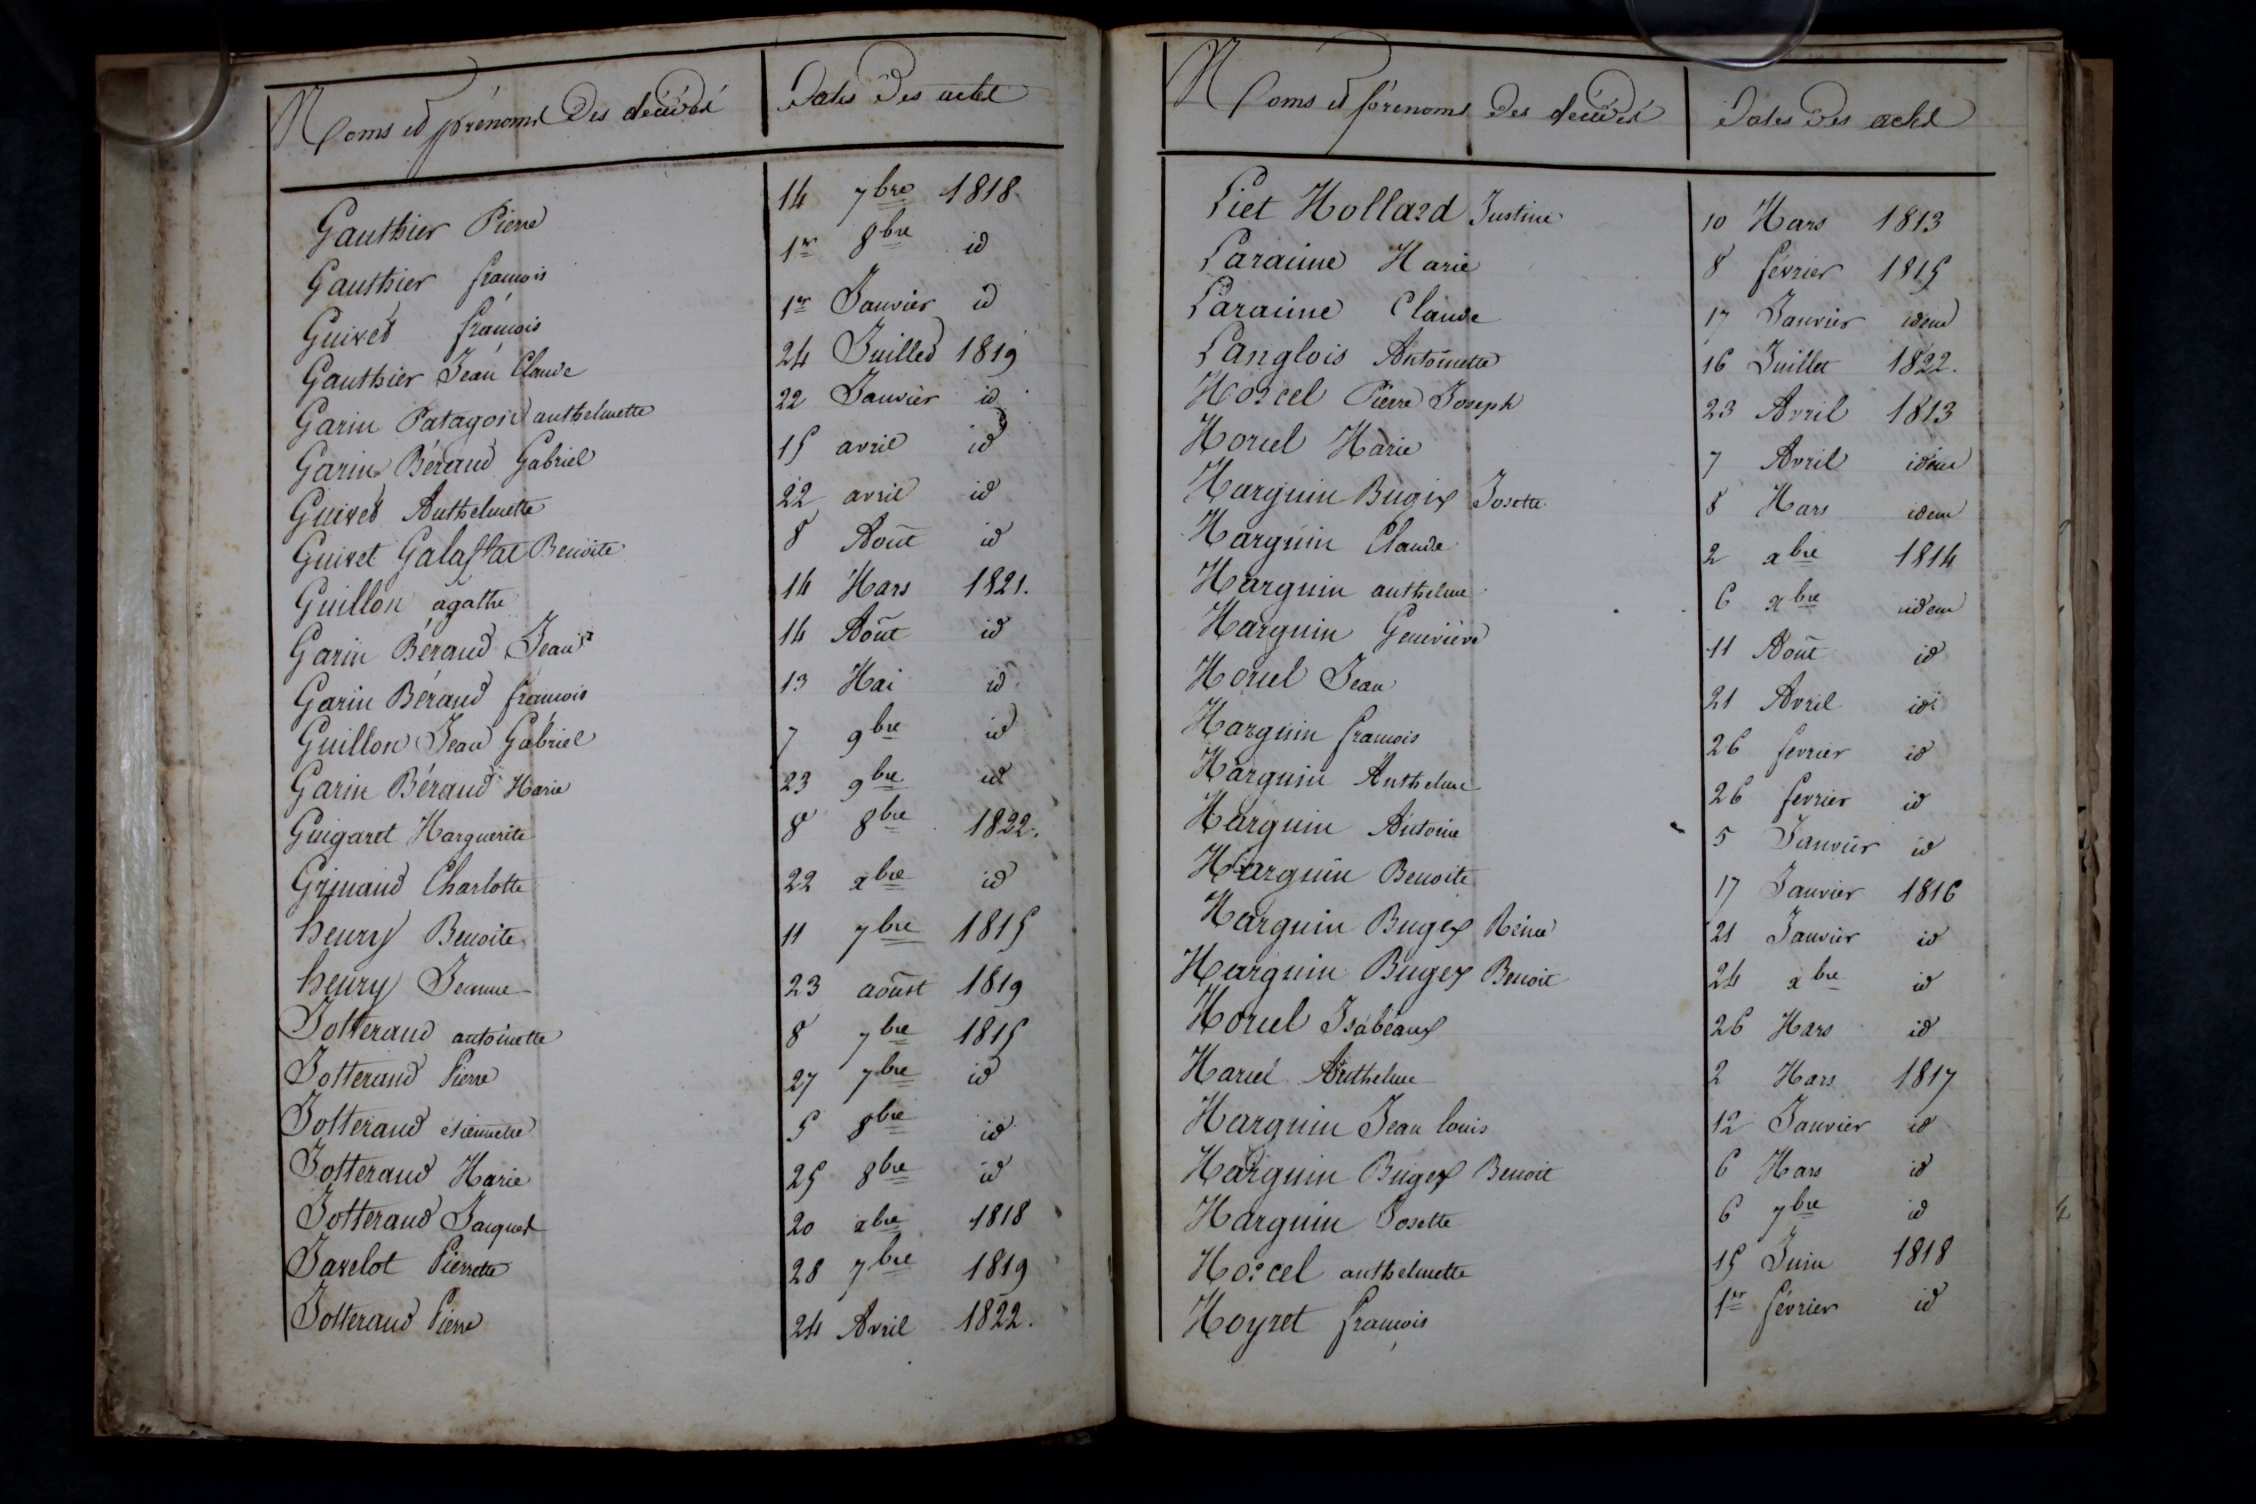 Noms et prénoms des décédés Dates des actes
Gauthier Pierre 14 7bre 1818
Gauthier françois 1er 8bre id
Guivet françois 1er Janvier id
Gauthier Jean Claude 24 Juillet 1819
Garin Patagon anthelmette 22 Janvier id
Garin Béraud Gabriel 15 avril id
Guivet Anthelmette 22 avril id
Guivet Galaffat Benoite 8 Août id
Guillon agathe 14 Mars 1821.
Garin Béraud Jean 14 Août id
Garin Béraud françois 13 Mai id
Guillon Jean Gabriel 7 9bre id
Garin Béraud Marie 23 9bre id
Guigaret Marguerite 8 8bre 1822.
Grimaud Charlotte 22 xbre id
henry Benoite 11 7bre 1815
henry Jeanne 23 aoûst 1819
Jotteraud antoinette 8 7bre 1815
Jotteraud Pierre 27 7bre id
Jotteraud etiennette 5 8bre id
Jotteraud Marie 25 8bre id
Jotteraud Jacques 20 xbre 1818
Javelot Pierrette 28 7bre 1819
Jotteraud Pierre 24 Avril 1822.
Noms et prénoms des décédés Dates des actes
Liet Mollard Justine 10 Mars 1813
Laraime Marie 8 février 1815
Laraime Claude 17 Janvier idem
Langlois Antoinette 16 Juillet 1822.
Morcel Pierre Joseph 23 Avril 1813
Morcel Marie 7 Avril idem
Marguin Bugix Josette 8 Mars idem
Marguin Claude 2 xbre 1814
Marguin anthelme 6 xbre idem
Marguin Geneviève 11 Août id
Morcel Jean 21 Avril id
Marguin françois 26 fevrier id
Marguin Anthelme 26 fevrier id
Marguin Antoine 5 Janvier id
Marguin Benoite 17 Janvier 1816
Marguin Bugex Reine 21 Janvier id
Marguin Bugex Benoit 24 xbre id
Morcel Isabeaux 26 Mars id
Marcel Anthelme 2 Mars 1817
Marguin Jean louis 12 Janvier id
Marguin Bugex Benoit 6 Mars id
Marguin Josette 6 7bre id
Morcel anthelmette 15 Juin 1818
Moyret françois 1er février id